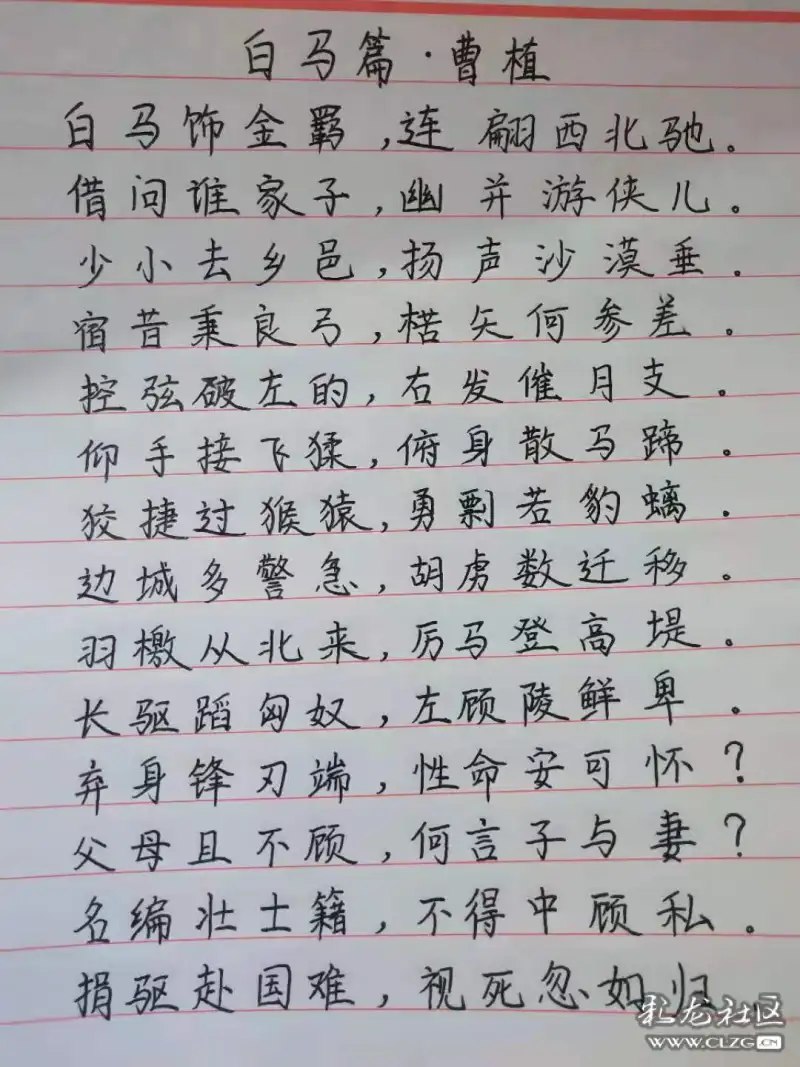 白马篇·曹植
白马饰金羁,连翩西北驰。
借问谁家子,幽并游侠儿。
少小去乡邑,扬声沙漠垂.
宿昔秉良弓,楛矢何参差。
控弦破左的,右发催月支.
仰手接飞猱,俯身散马蹄.
狡捷过猴猿,勇剽若豹螭.
边城多警急,胡虏数迁移.
羽檄从北来,厉马登高堤.
长驱蹈匈奴,左顾陵鲜卑.
弃身锋刃端,性命安可怀?
父母且不顾,何言子与妻?
名编壮士籍,不得中顾私.
捐驱赴国难,视死忽如归
私龙社区
WWW.CLZG.CN